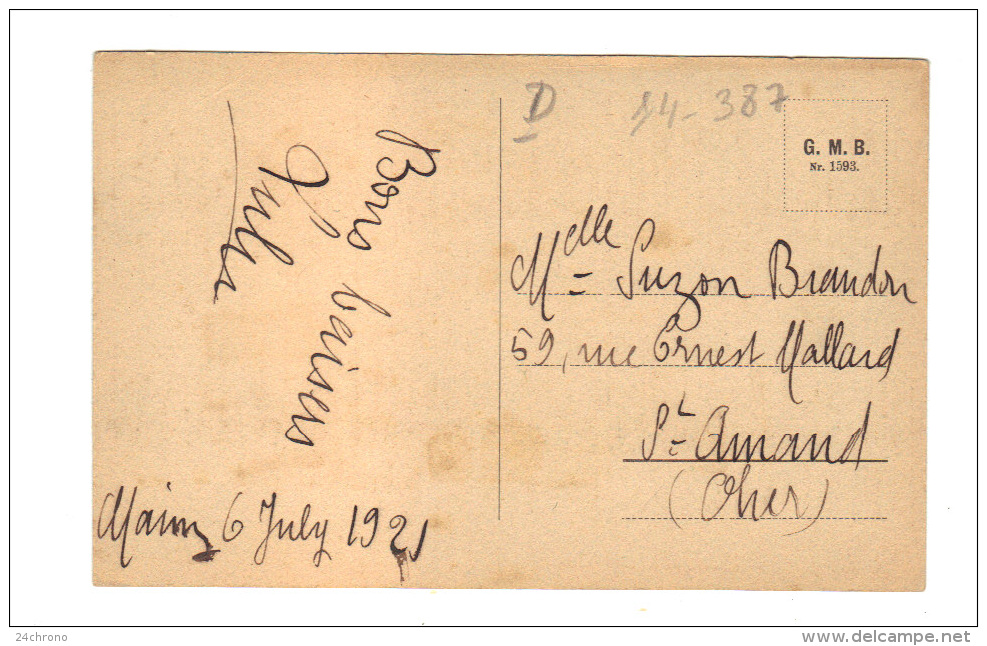 D 14-387
G. M. B.
Nr. 1593.
Bons baisers
Jules
6 July 1921
Mdlle Suzon Brandon
59, rue Ernest Mallard
St-Amand
(Cher)
24chrono
www.delcampe.net